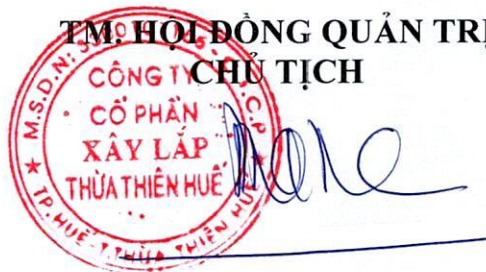 TM. HỘI ĐỒNG QUẢN TRỊ
CHỦ TỊCH
CÔNG TY
CỔ PHẦN
XÂY LẮP
THỪA THIÊN HUẾ
M.S.D.N:
C.T.C.P
TP. HUẾ - T.THỪA THIÊN HUẾ